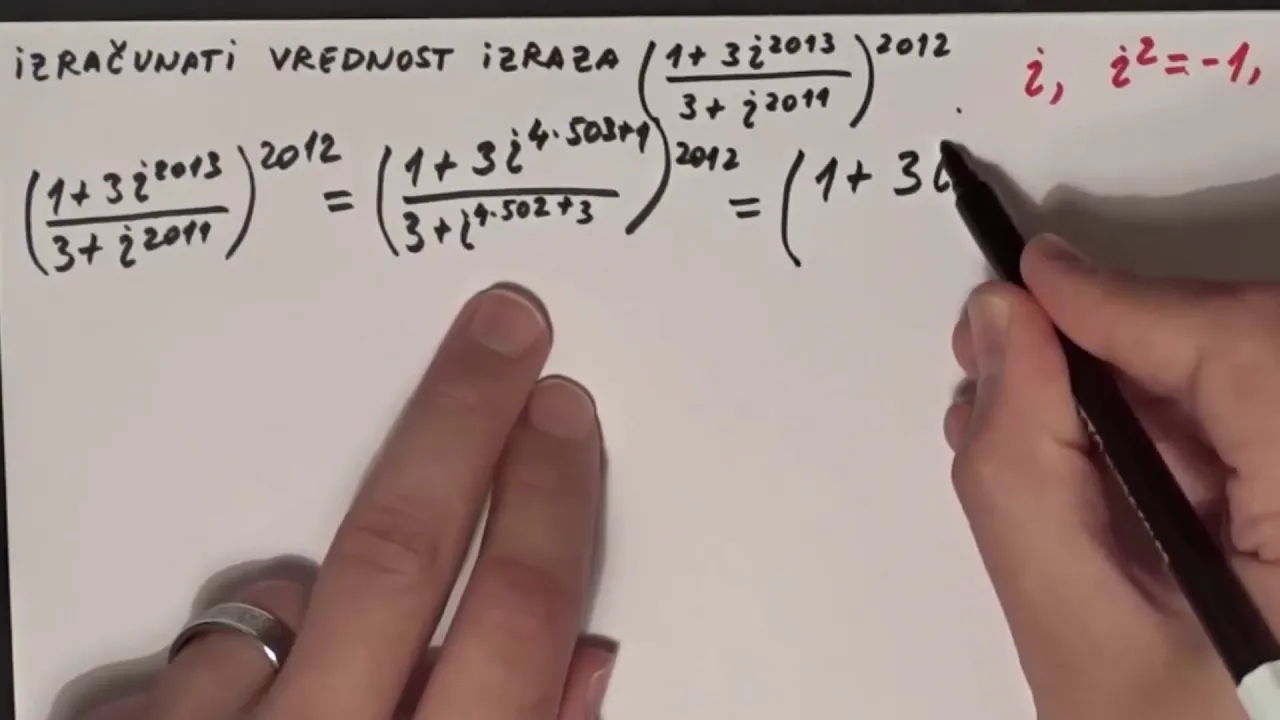 iZRAČUNATi VREDNOST iZRAZA ((1+3i^2013)/(3+i^2011))^2012. i, i^2=-1,
((1+3i^2013)/(3+i^2011))^2012 = ((1+3i^(4·503+1))/(3+i^(4·502+3)))^2012 = (1+3i